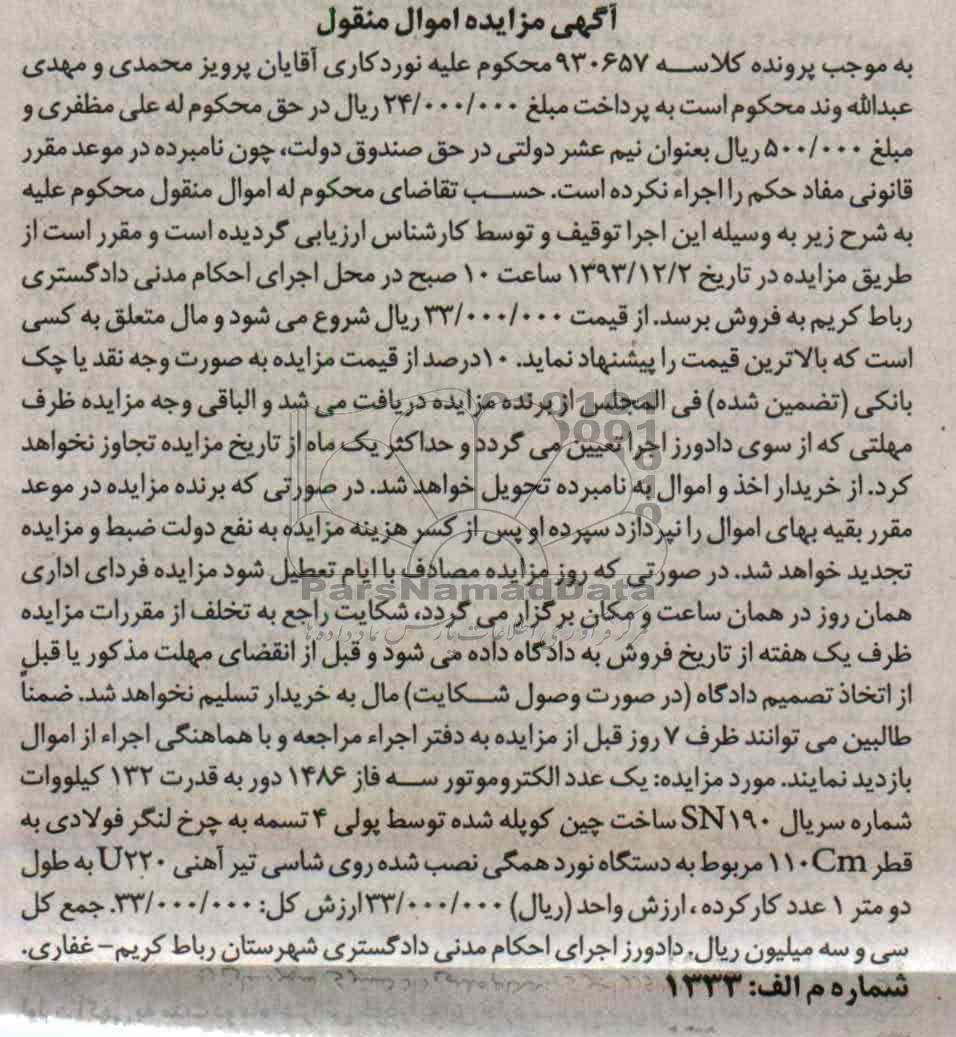 آگهی مزایده اموال منقول
به موجب پرونده کلاسه ۹۳۰۶۵۷ محکوم علیه نوردکاری آقایان پرویز محمدی و مهدی
عبدالله وند محکوم است به پرداخت مبلغ ۲۴/۰۰۰/۰۰۰ ریال در حق محکوم له علی مظفری و
مبلغ ۵۰۰/۰۰۰ ریال بعنوان نیم عشر دولتی در حق صندوق دولت، چون نامبرده در موعد مقرر
قانونی مفاد حکم را اجراء نکرده است. حسب تقاضای محکوم له اموال منقول محکوم علیه
به شرح زیر به وسیله این اجرا توقیف و توسط کارشناس ارزیابی گردیده است و مقرر است از
طریق مزایده در تاریخ ۱۳۹۳/۱۲/۲ ساعت ۱۰ صبح در محل اجرای احکام مدنی دادگستری
رباط کریم به فروش برسد. از قیمت ۳۳/۰۰۰/۰۰۰ ریال شروع می شود و مال متعلق به کسی
است که بالاترین قیمت را پیشنهاد نماید. ۱۰درصد از قیمت مزایده به صورت وجه نقد یا چک
بانکی (تضمین شده) فی المجلس از برنده مزایده دریافت می شد و الباقی وجه مزایده ظرف
مهلتی که از سوی دادورز اجرا تعیین می گردد و حداکثر یک ماه از تاریخ مزایده تجاوز نخواهد
کرد. از خریدار اخذ و اموال به نامبرده تحویل خواهد شد. در صورتی که برنده مزایده در موعد
مقرر بقیه بهای اموال را نپردازد سپرده او پس از کسر هزینه مزایده به نفع دولت ضبط و مزایده
تجدید خواهد شد. در صورتی که روز مزایده مصادف با ایام تعطیل شود مزایده فردای اداری
ParsNamadData
همان روز در همان ساعت و مکان برگزار می گردد، شکایت راجع به تخلف از مقررات مزایده
ظرف یک هفته از تاریخ فروش به دادگاه داده می شود و قبل از انقضای مهلت مذکور یا قبل
از اتخاذ تصمیم دادگاه (در صورت وصول شکایت) مال به خریدار تسلیم نخواهد شد. ضمناً
طالبین می توانند ظرف ۷ روز قبل از مزایده به دفتر اجراء مراجعه و با هماهنگی اجراء از اموال
بازدید نمایند. مورد مزایده: یک عدد الکتروموتور سه فاز ۱۴۸۶ دور به قدرت ۱۳۲ کیلووات
شماره سریال SN۱۹۰ ساخت چین کوپله شده توسط پولی ۴ تسمه به چرخ لنگر فولادی به
قطر ۱۱۰Cm مربوط به دستگاه نورد همگی نصب شده روی شاسی تیر آهنی U۲۲۰ به طول
دو متر ۱ عدد کار کرده ، ارزش واحد (ریال) ۳۳/۰۰۰/۰۰۰ارزش کل: ۳۳/۰۰۰/۰۰۰. جمع کل
سی و سه میلیون ریال. دادورز اجرای احکام مدنی دادگستری شهرستان رباط کریم- غفاری.
شماره م الف: ۱۳۳۳